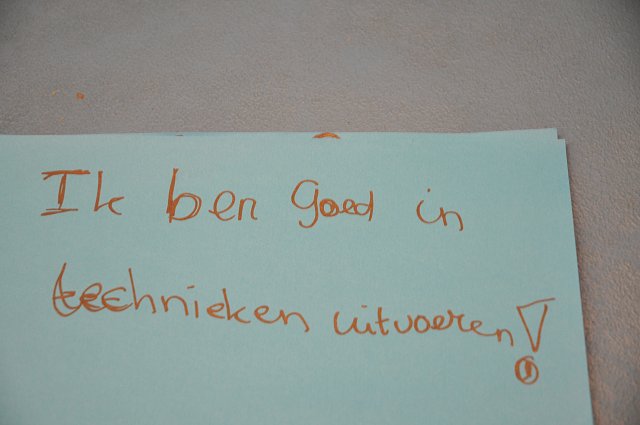 Ik ben goed in
technieken uitvoeren!